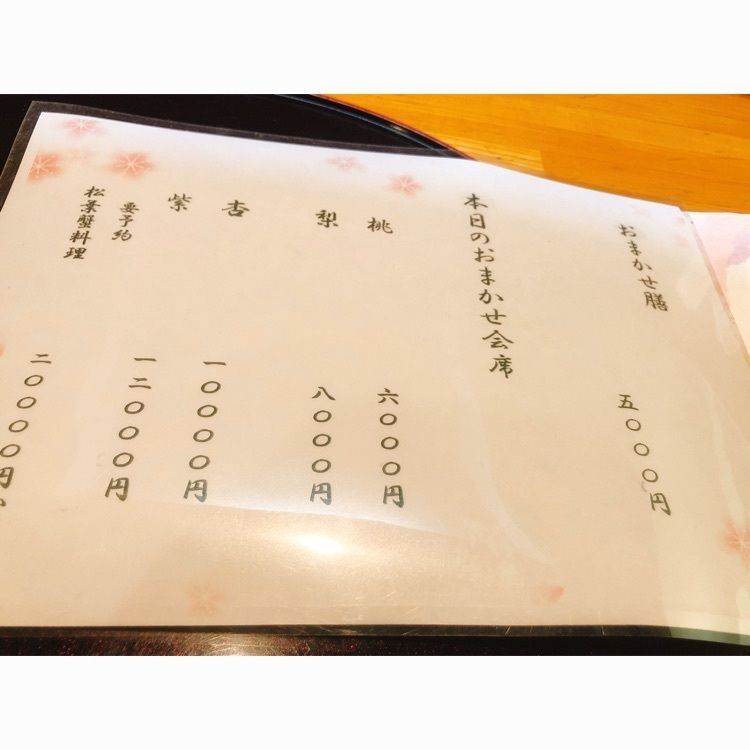 おまかせ膳 五〇〇〇円
本日のおまかせ会席
桃 六〇〇〇円
梨 八〇〇〇円
杏 一〇〇〇〇円
紫 一二〇〇〇円
要予約
松葉蟹料理 二〇〇〇〇円